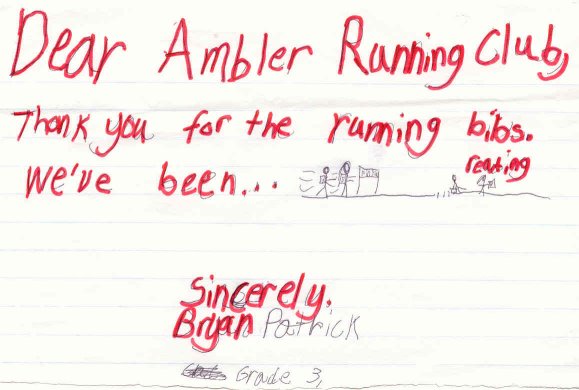 Dear Ambler Running Club,
Thank you for the running bibs.
We've been...
resting
Sincerely.
Bryan Patrick
Grade 3,